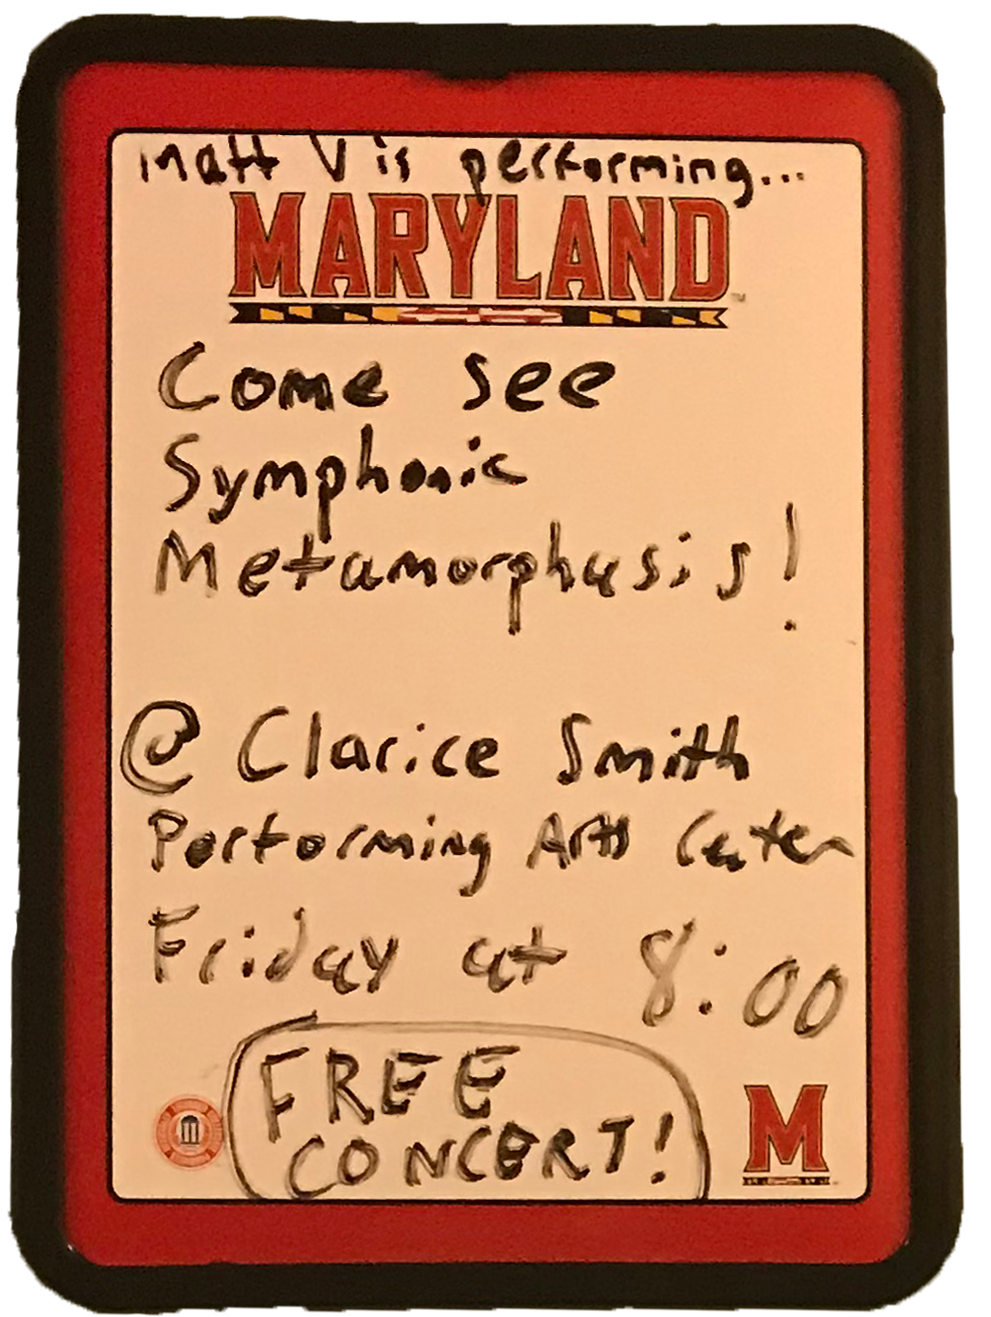 Matt V is performing...
MARYLAND
Come see
Symphonic
Metamorphasis!
@ Clarice Smith
Performing Arts Center
Friday at 8:00
FREE
CONCERT!
M